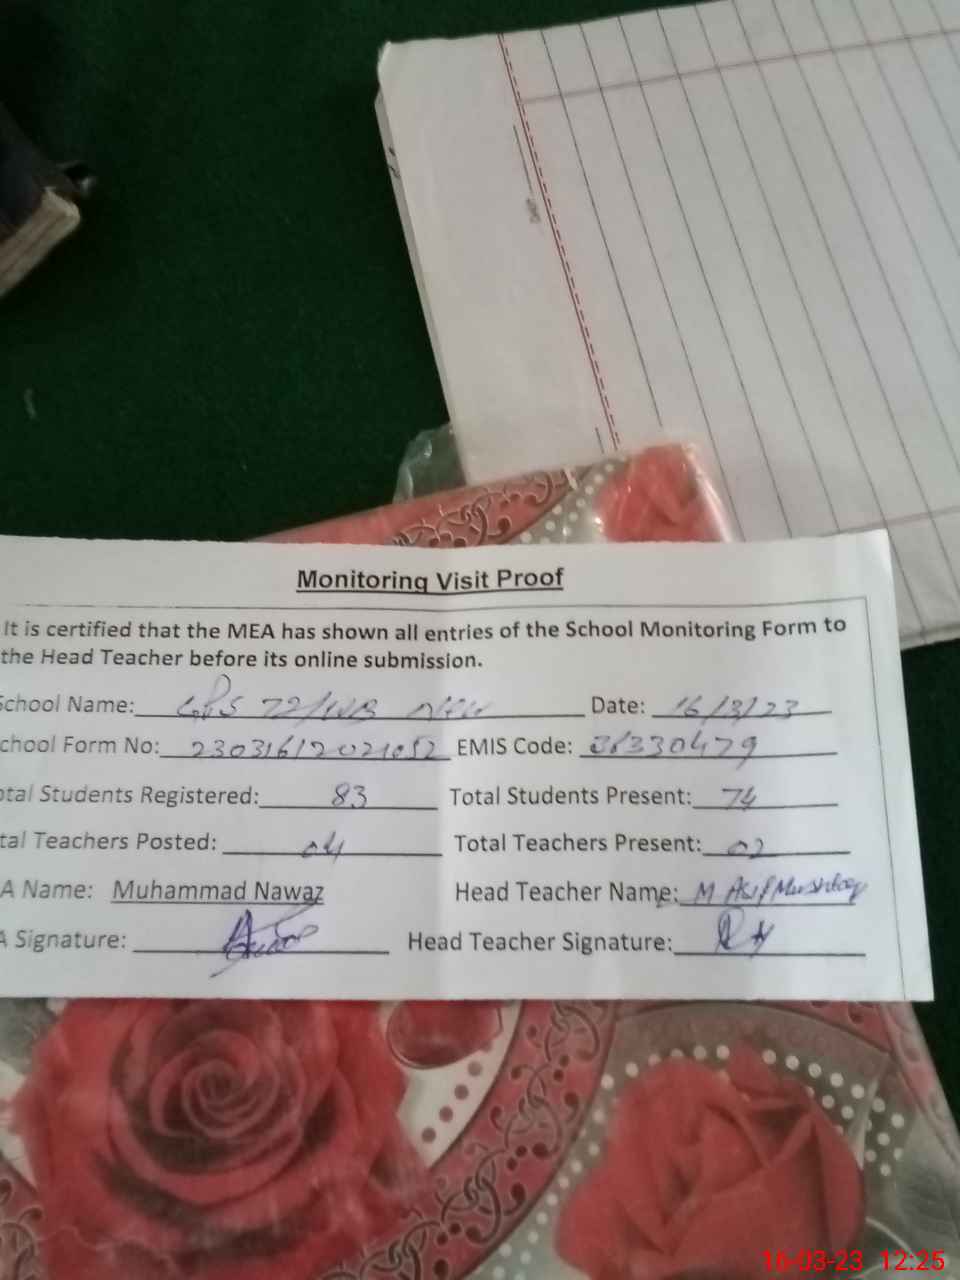 Monitoring Visit Proof
It is certified that the MEA has shown all entries of the School Monitoring Form to
the Head Teacher before its online submission.
School Name: GPS 72/WB Date: 16/3/23
chool Form No: EMIS Code: 36330479
otal Students Registered: 83 Total Students Present: 74
tal Teachers Posted: 04 Total Teachers Present: 02
A Name: Muhammad Nawaz Head Teacher Name: M Asif Mushtaq
A Signature: Head Teacher Signature:
16-03-23 12:25